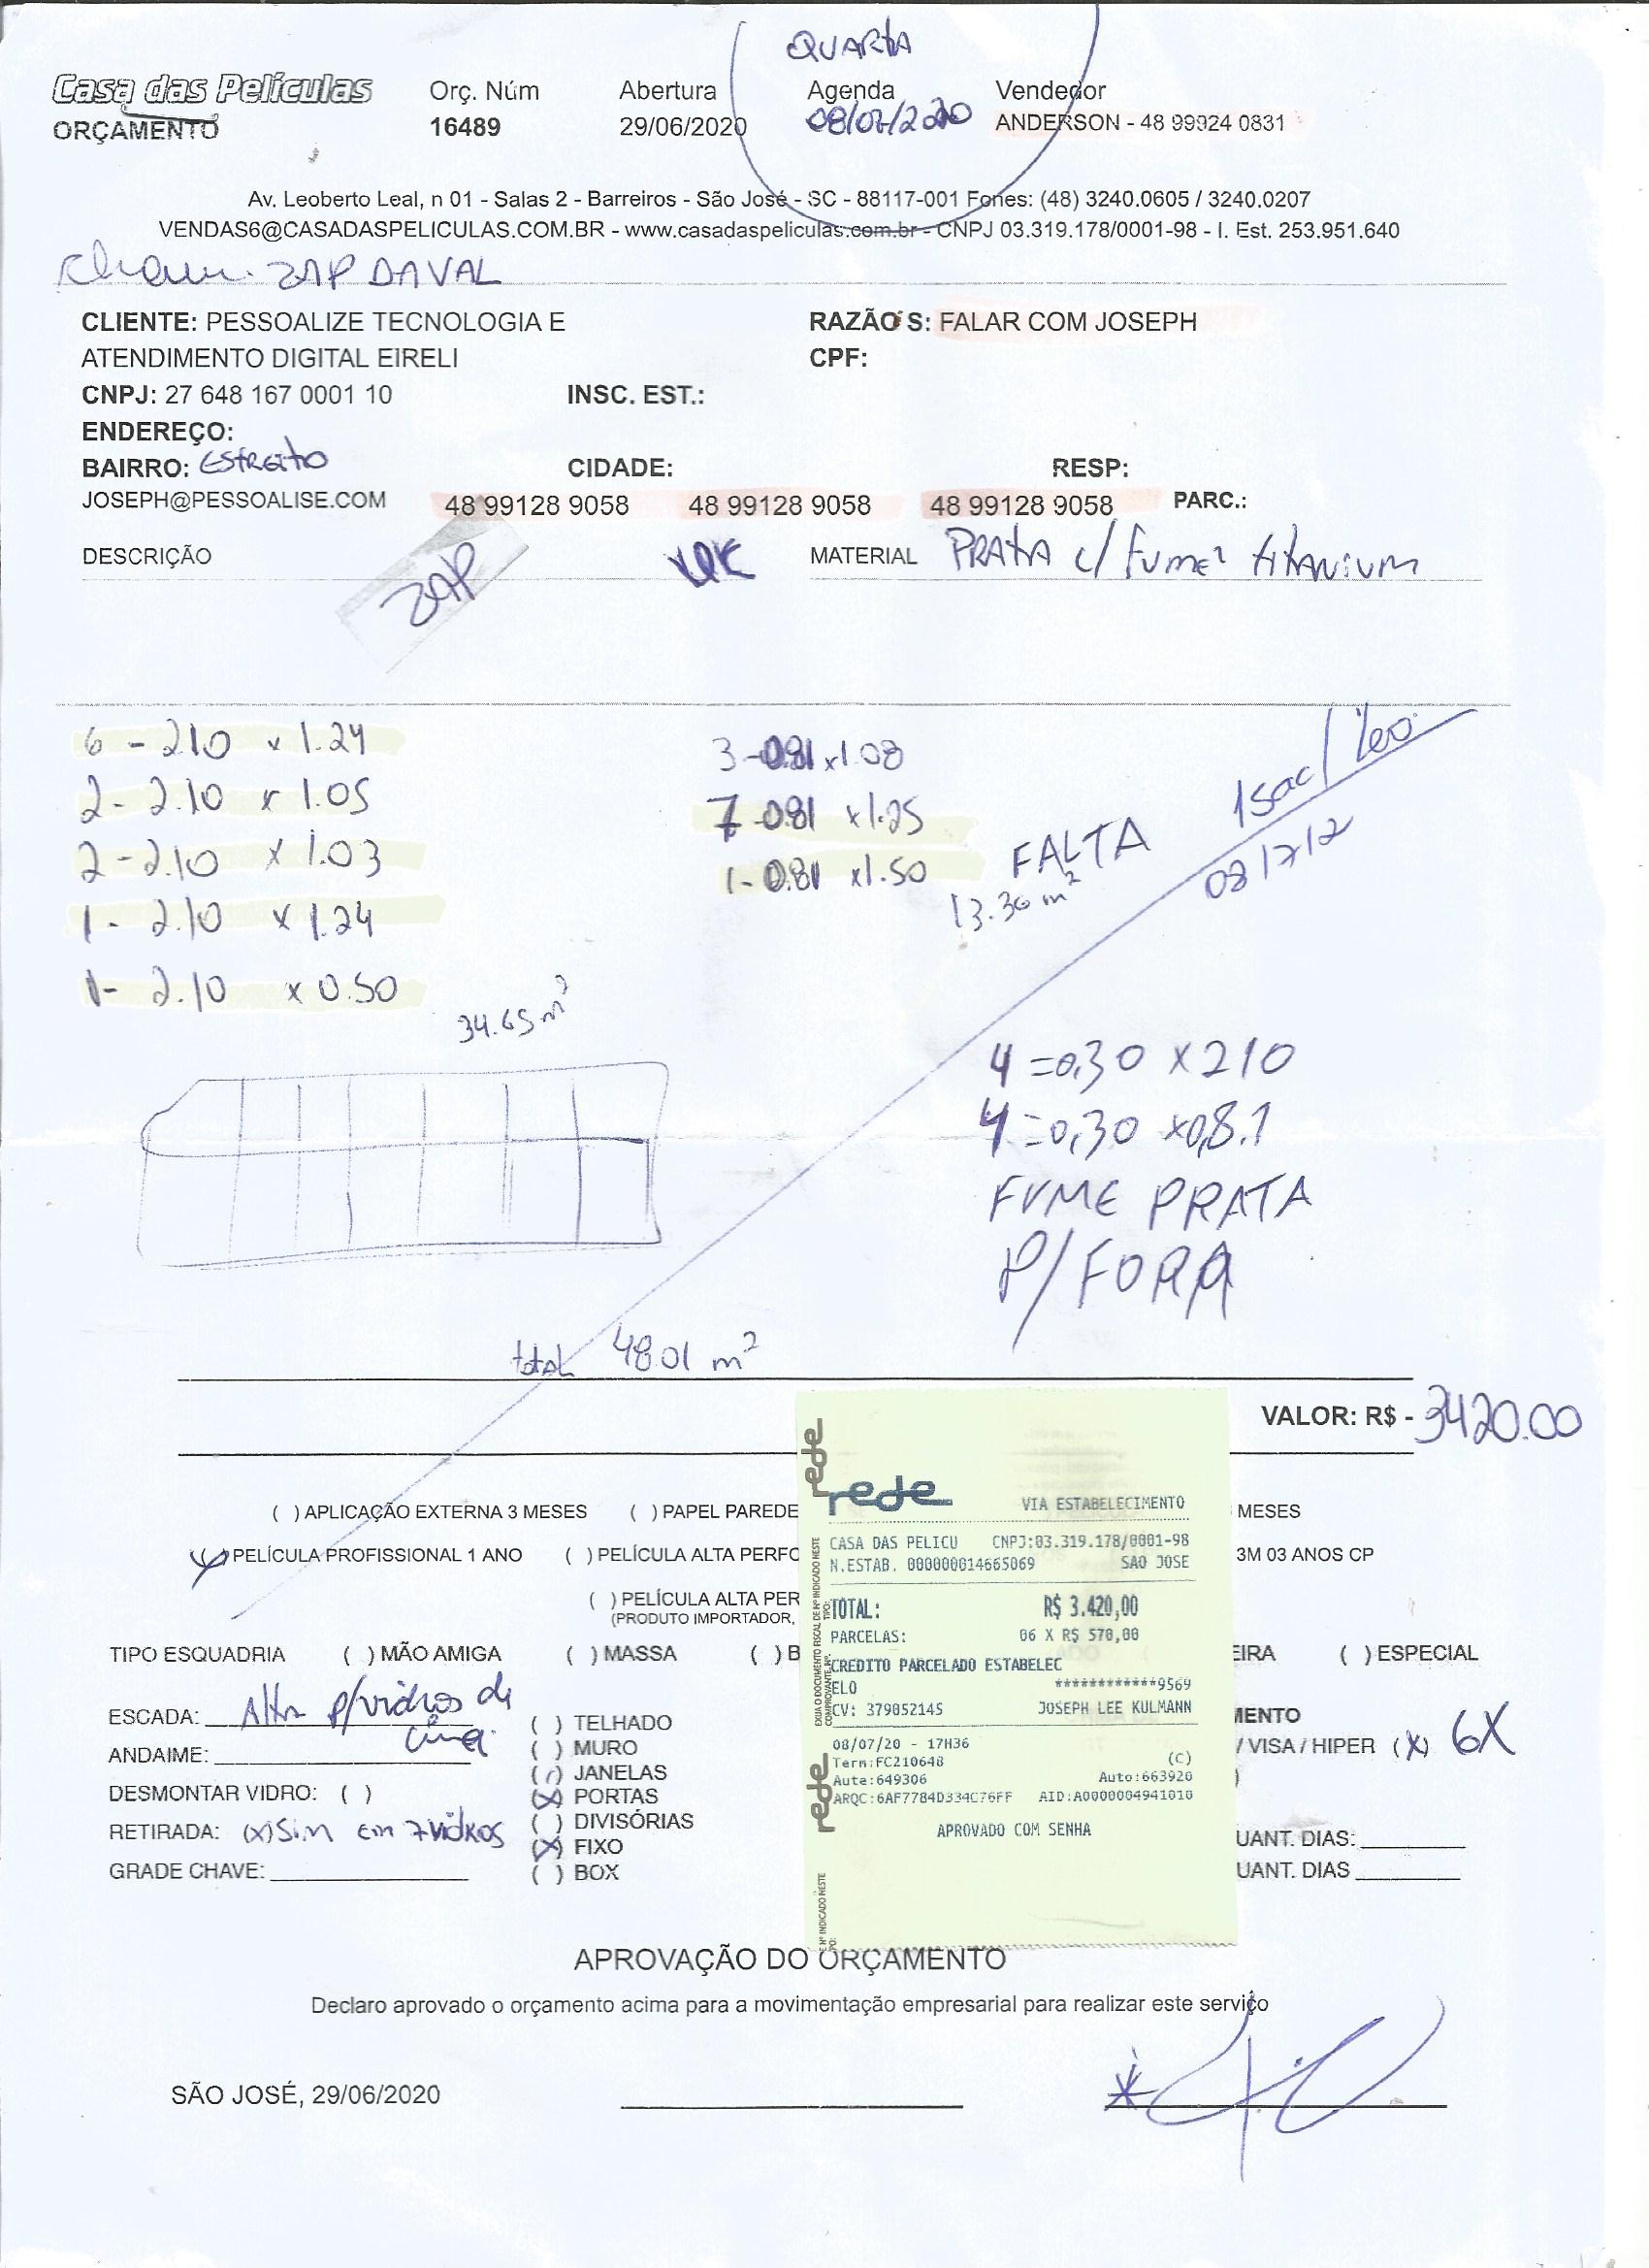 QUARTA
Casa das Películas Orç. Núm Abertura Agenda Vendedor
ORÇAMENTO 16489 29/06/2020 08/07/2020 ANDERSON - 48 99924 0831
Av. Leoberto Leal, n 01 - Salas 2 - Barreiros - São José - SC - 88117-001 Fones: (48) 3240.0605 / 3240.0207
VENDAS6@CASADASPELICULAS.COM.BR - www.casadaspeliculas.com.br - CNPJ 03.319.178/0001-98 - I. Est. 253.951.640
ZAP DA VAL
CLIENTE: PESSOALIZE TECNOLOGIA E RAZÃO S: FALAR COM JOSEPH
ATENDIMENTO DIGITAL EIRELI CPF:
CNPJ: 27 648 167 0001 10 INSC. EST.:
ENDEREÇO:
BAIRRO: EStReito CIDADE: RESP:
JOSEPH@PESSOALISE.COM 48 99128 9058 48 99128 9058 48 99128 9058 PARC.:
DESCRIÇÃO ZAP MATERIAL PRATA c/ Fume titanium
6 - 2.10 x 1.24 3 - 0.81 x 1.08 Isac/Leo
2 - 2.10 x 1.05 7 0.81 x 1.25 FALTA
2 - 2.10 x 1.03 1 - 0.81 x 1.50 13.36 m² 08/7/2
1 - 2.10 x 1.24
1 - 2.10 x 0.50
34.65 m²
4 = 0,30 X 210
4 = 0,30 x 0,8.1
FUME PRATA
P/ FORA
total 48.01 m²
VALOR: R$ - 3420.00
rede
rede VIA ESTABELECIMENTO
( ) APLICAÇÃO EXTERNA 3 MESES ( ) PAPEL PAREDE MESES
CASA DAS PELICU CNPJ:03.319.178/0001-98
( ) PELÍCULA PROFISSIONAL 1 ANO ( ) PELÍCULA ALTA PERFO 3M 03 ANOS CP
N.ESTAB. 000000014665069 SAO JOSE
( ) PELÍCULA ALTA PER
(PRODUTO IMPORTADOR,
TOTAL: R$ 3.420,00
PARCELAS: 06 X R$ 570,00
TIPO ESQUADRIA ( ) MÃO AMIGA ( ) MASSA ( ) B EIRA ( ) ESPECIAL
CREDITO PARCELADO ESTABELEC
ELO ************9569
CV: 379052145 JOSEPH LEE KULMANN
08/07/20 - 17H36
Term:FC210648 (C)
Aute:649306 Auto:663920
ARQC:6AF7784D334C76FF AID:A0000004941010
APROVADO COM SENHA
rede
ESCADA: Alta p/vidros de cima ( ) TELHADO MENTO
ANDAIME: ( ) MURO / VISA / HIPER (X) 6X
( ) JANELAS
DESMONTAR VIDRO: ( ) (X) PORTAS
RETIRADA: (x) Sim em 7 vidros ( ) DIVISÓRIAS UANT. DIAS:
(X) FIXO
GRADE CHAVE: ( ) BOX UANT. DIAS
APROVAÇÃO DO ORÇAMENTO
Declaro aprovado o orçamento acima para a movimentação empresarial para realizar este serviço
SÃO JOSÉ, 29/06/2020